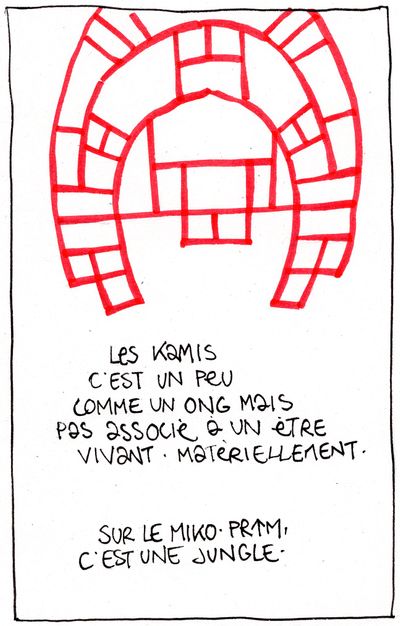 Les KAMIS
C'EST UN Peu
COMME UN ONG MAIS
PAS ASSOCIÈ À UN ÈTRE
VIVANT. MATÈRIELLEMENT.
SUR LE MIKO. PR↑M,
C'EST UNE JUNGLE.